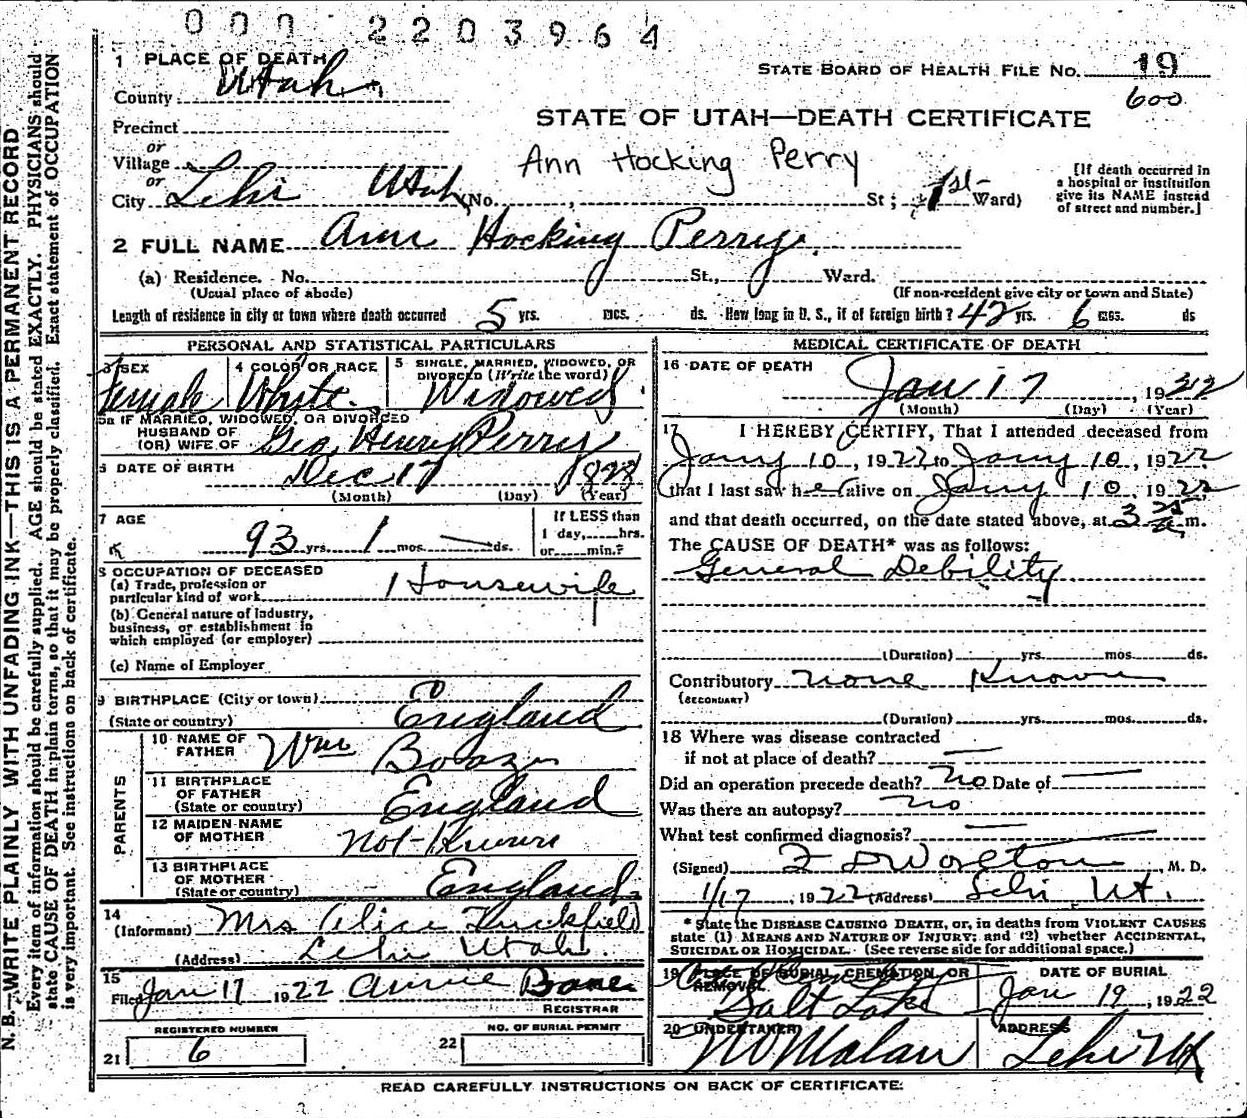 0 0 0 2 2 0 3 9 6 4
1 PLACE OF DEATH
County Utah
STATE BOARD OF HEALTH FILE NO. 19
600
Precinct
or
Village
or
City Lehi Utah (No. , St ; 1st Ward)
STATE OF UTAH—DEATH CERTIFICATE
Ann Hocking Perry
[If death occurred in
a hospital or institution
give its NAME instead
of street and number.]
2 FULL NAME Ann Hocking Perry
(a) Residence. No. St., Ward.
(Usual place of abode) (If non-resident give city or town and State)
Length of residence in city or town where death occurred 5 yrs. mos. ds. How long in U. S., if of foreign birth? 42 yrs. 6 mos. ds
PERSONAL AND STATISTICAL PARTICULARS
3 SEX Female
4 COLOR OR RACE White
5 SINGLE, MARRIED, WIDOWED, OR
DIVORCED (Write the word) Widowed
5a IF MARRIED, WIDOWED, OR DIVORCED
HUSBAND OF
(OR) WIFE OF Geo. Henry Perry
6 DATE OF BIRTH Dec 17 1828
(Month) (Day) (Year)
7 AGE
93 yrs. 1 mos. — ds.
If LESS than
1 day, hrs.
or min.?
8 OCCUPATION OF DECEASED
(a) Trade, profession or
particular kind of work Housewife
(b) General nature of industry,
business, or establishment in
which employed (or employer)
(c) Name of Employer
9 BIRTHPLACE (City or town)
(State or country) England
PARENTS
10 NAME OF
FATHER Wm
11 BIRTHPLACE
OF FATHER
(State or country) England
12 MAIDEN NAME
OF MOTHER Not Known
13 BIRTHPLACE
OF MOTHER
(State or country) England
14
(Informant) Mrs Alice Tuckfield
(Address) Lehi Utah
15
Filed Jan 17 1922 Annie
REGISTRAR
REGISTERED NUMBER
21 6
NO. OF BURIAL PERMIT
22
MEDICAL CERTIFICATE OF DEATH
16 DATE OF DEATH
Jan 17, 1922
(Month) (Day) (Year)
17 I HEREBY CERTIFY, That I attended deceased from
Jany 10, 1922 to Jany 10, 1922
that I last saw her alive on Jany 10 1922
and that death occurred, on the date stated above, at 3 m.
The CAUSE OF DEATH* was as follows:
General Debility
(Duration) yrs. mos. ds.
Contributory none Known
(SECONDARY)
(Duration) yrs. mos. ds.
18 Where was disease contracted
if not at place of death? —
Did an operation precede death? no Date of —
Was there an autopsy? no
What test confirmed diagnosis? —
(Signed) , M. D.
1/17, 1922 (Address) Lehi Ut.
* State the DISEASE CAUSING DEATH, or, in deaths from VIOLENT CAUSES
state (1) MEANS AND NATURE OF INJURY; and (2) whether ACCIDENTAL,
SUICIDAL OR HOMICIDAL. (See reverse side for additional space.)
19 PLACE OF BURIAL CREMATION OR
REMOVAL
Salt Lake
DATE OF BURIAL
Jan 19, 1922
20 UNDERTAKER
ADDRESS
Lehi Ut
READ CAREFULLY INSTRUCTIONS ON BACK OF CERTIFICATE.
N. B.—WRITE PLAINLY WITH UNFADING INK—THIS IS A PERMANENT RECORD
Every item of information should be carefully supplied. AGE should be stated EXACTLY. PHYSICIANS should
state CAUSE OF DEATH in plain terms, so that it may be properly classified. Exact statement of OCCUPATION
is very important. See instructions on back of certificate.